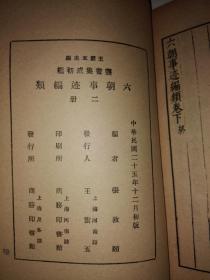 中華民國二十五年十二月初版
王雲五主編
叢書集成初編
六朝事迹編類
二册
編者 張敦頤
發行人 王雲五
上海河南路
印刷所 商務印書館
上海河南路
發行所 商務印書館
上海及各埠
六朝事迹編類卷下